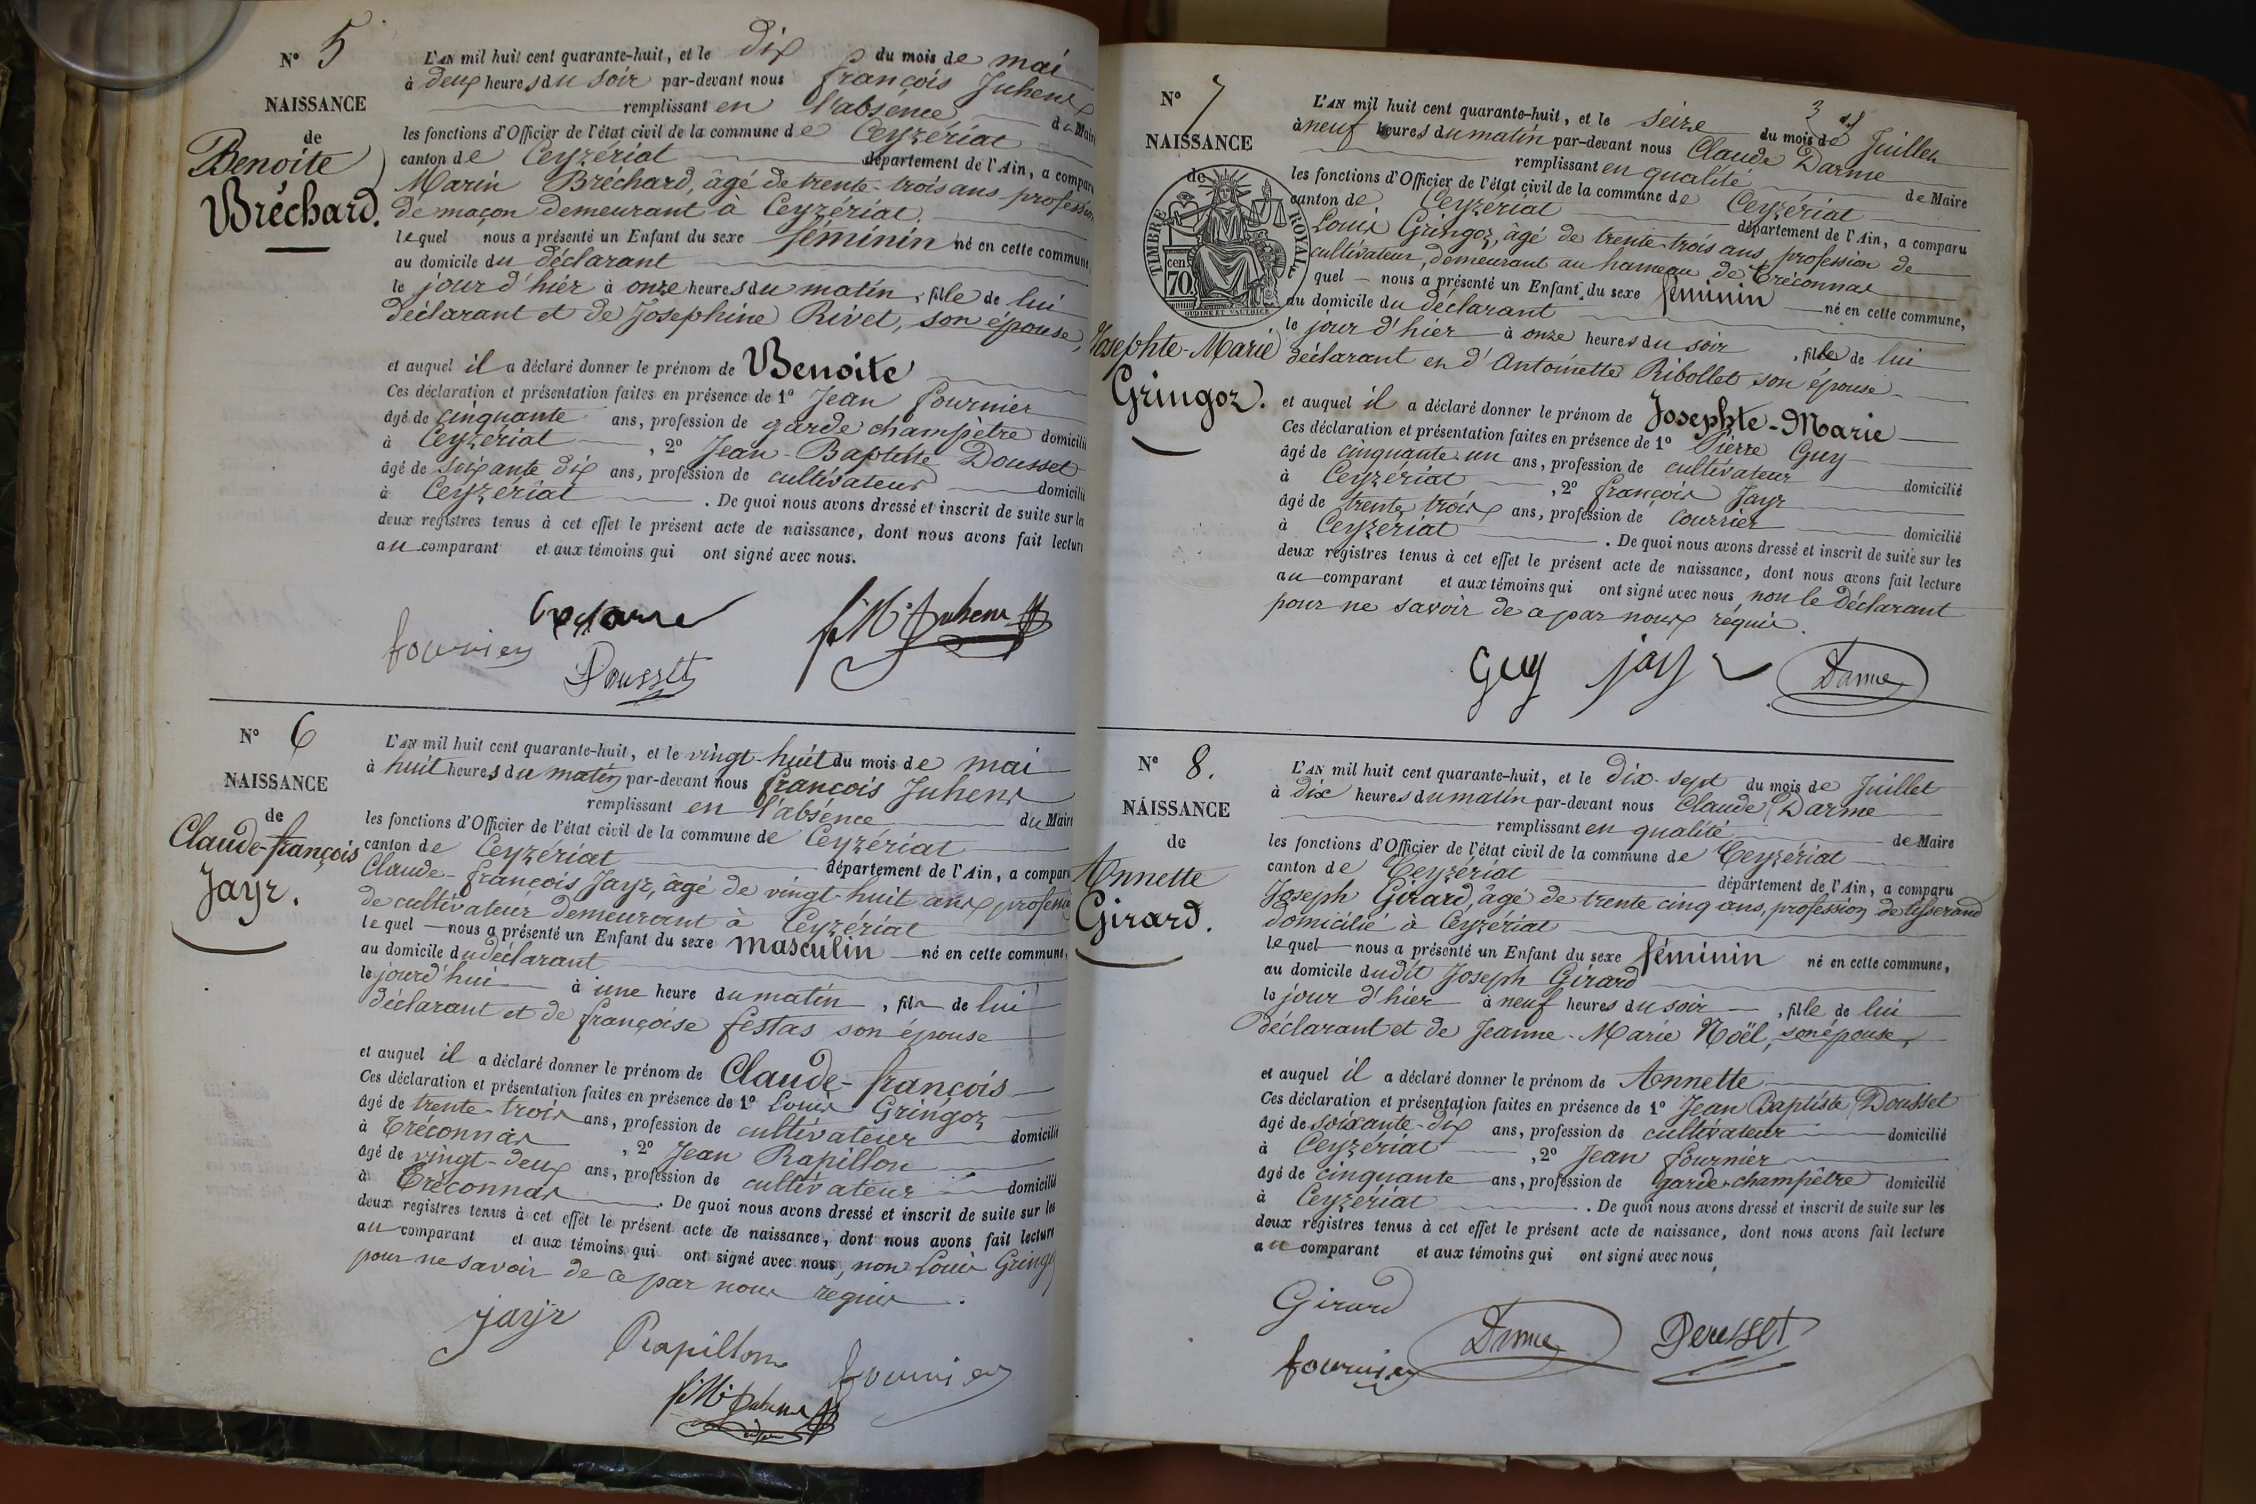 N° 5
NAISSANCE
de
Benoite
Bréchard.
L'AN mil huit cent quarante-huit, et le dix du mois de mai
à deux heures du soir par-devant nous françois Juhens
remplissant en l'absence du Maire
les fonctions d'Officier de l'état civil de la commune de Ceyzériat
canton de Ceyzériat département de l'Ain, a comparu
Marin Bréchard, âgé de trente-trois ans, profession
de maçon demeurant à Ceyzériat.
lequel nous a présenté un Enfant du sexe féminin né en cette commune,
au domicile du déclarant
le jour d'hier à onze heures du matin, fille de lui
déclarant et de Josephine Rivet, son épouse,
et auquel il a déclaré donner le prénom de Benoite
Ces déclaration et présentation faites en présence de 1° Jean fournier
âgé de cinquante ans, profession de garde champêtre domicilié
à Ceyzériat, 2° Jean-Baptiste Dousset
âgé de soixante dix ans, profession de cultivateur domicilié
à Ceyzériat. De quoi nous avons dressé et inscrit de suite sur les
deux registres tenus à cet effet le présent acte de naissance, dont nous avons fait lecture
au comparant et aux témoins qui ont signé avec nous.
fournier
Dousset
N° 6
NAISSANCE
de
Claude-françois
Jayr.
L'AN mil huit cent quarante-huit, et le vingt-huit du mois de mai
à huit heures du matin par-devant nous françois Juhens
remplissant en l'absence du Maire
les fonctions d'Officier de l'état civil de la commune de Ceyzériat
canton de Ceyzériat département de l'Ain, a comparu
Claude-françois Jayr, âgé de vingt-huit ans, profession
de cultivateur demeurant à Ceyzériat
lequel nous a présenté un Enfant du sexe masculin né en cette commune,
au domicile du déclarant
le jourd'hui à une heure du matin, fils de lui
déclarant et de françoise festas son épouse
et auquel il a déclaré donner le prénom de Claude-françois
Ces déclaration et présentation faites en présence de 1° Louis Gringoz
âgé de trente-trois ans, profession de cultivateur domicilié
à Tréconnas, 2° Jean Rapillon
âgé de vingt-deux ans, profession de cultivateur domicilié
à Tréconnas. De quoi nous avons dressé et inscrit de suite sur les
deux registres tenus à cet effet le présent acte de naissance, dont nous avons fait lecture
au comparant et aux témoins qui ont signé avec nous, non Louis Gringoz
pour ne savoir de ce par nous requis.
jayr
Rapillon
fournier
N° 7
NAISSANCE
de
TIMBRE ROYAL
70 cen
OUDINE ET VAUTHIER
Josephte-Marie
Gringoz.
L'AN mil huit cent quarante-huit, et le seize du mois de Juillet
à neuf heures du matin par-devant nous Claude Darme
remplissant en qualité de Maire
les fonctions d'Officier de l'état civil de la commune de Ceyzériat
canton de Ceyzériat département de l'Ain, a comparu
Louis Gringoz, âgé de trente-trois ans, profession de
cultivateur, demeurant au hameau de Tréconnas
quel nous a présenté un Enfant du sexe féminin né en cette commune,
au domicile du déclarant
le jour d'hier à onze heures du soir, fille de lui
déclarant et d'Antoinette Ribollet son épouse
et auquel il a déclaré donner le prénom de Josephte-Marie
Ces déclaration et présentation faites en présence de 1° Pierre Guy
âgé de cinquante-un ans, profession de cultivateur domicilié
à Ceyzériat, 2° françois Jayr
âgé de trente trois ans, profession de courrier domicilié
à Ceyzériat. De quoi nous avons dressé et inscrit de suite sur les
deux registres tenus à cet effet le présent acte de naissance, dont nous avons fait lecture
au comparant et aux témoins qui ont signé avec nous, non le déclarant
pour ne savoir de ce par nous requis.
Guy jayr Darme
N° 8.
NAISSANCE
de
Annette
Girard.
L'AN mil huit cent quarante-huit, et le dix-sept du mois de Juillet
à dix heures du matin par-devant nous Claude Darme
remplissant en qualité de Maire
les fonctions d'Officier de l'état civil de la commune de Ceyzériat
canton de Ceyzériat département de l'Ain, a comparu
Joseph Girard, âgé de trente cinq ans, profession de tisserand
domicilié à Ceyzériat
lequel nous a présenté un Enfant du sexe féminin né en cette commune,
au domicile dudit Joseph Girard
le jour d'hier à neuf heures du soir, fille de lui
déclarant et de Jeanne-Marie Noël, son épouse,
et auquel il a déclaré donner le prénom de Annette
Ces déclaration et présentation faites en présence de 1° Jean Baptiste Dousset
âgé de soixante-dix ans, profession de cultivateur domicilié
à Ceyzériat, 2° Jean fournier
âgé de cinquante ans, profession de garde-champêtre domicilié
à Ceyzériat. De quoi nous avons dressé et inscrit de suite sur les
deux registres tenus à cet effet le présent acte de naissance, dont nous avons fait lecture
au comparant et aux témoins qui ont signé avec nous,
Girard
fournier Darme Dousset